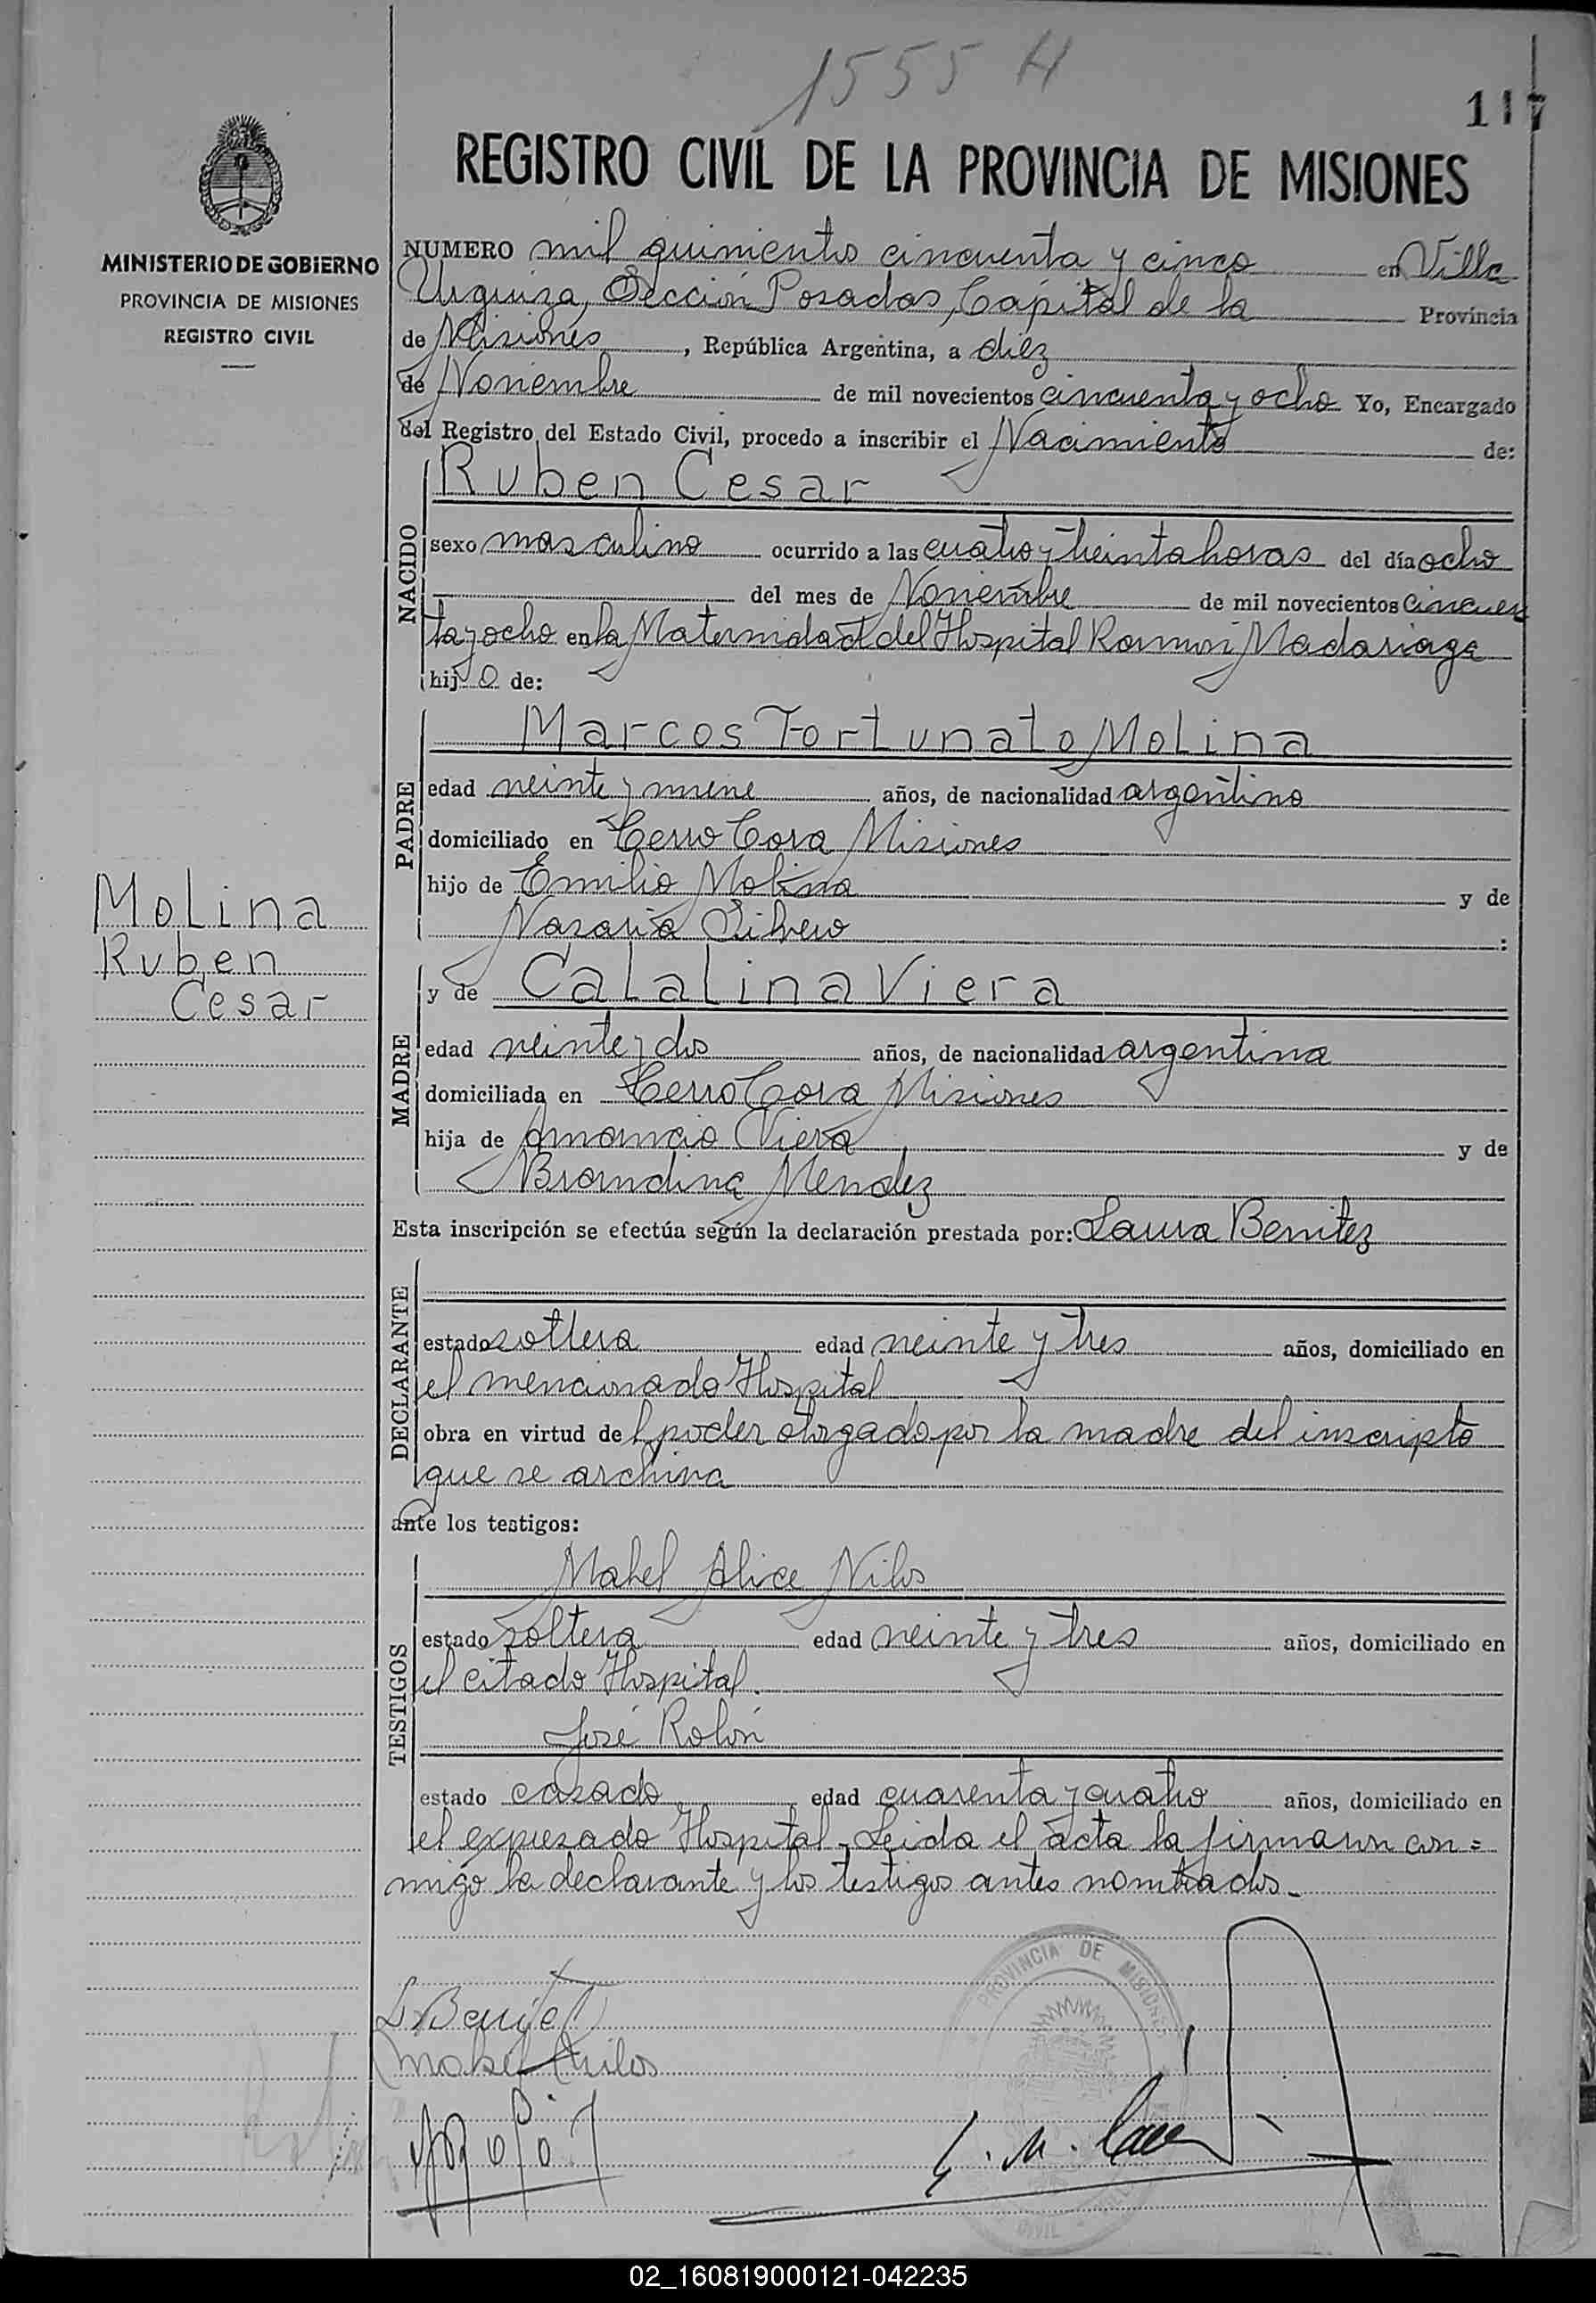 1555 H
117
REGISTRO CIVIL DE LA PROVINCIA DE MISIONES
MINISTERIO DE GOBIERNO
PROVINCIA DE MISIONES
REGISTRO CIVIL
NUMERO mil quinientos cincuenta y cinco en Villa
Urquiza, Sección Posadas, Capital de la Provincia
de Misiones, República Argentina, a diez
de Noviembre de mil novecientos cincuenta y ocho Yo, Encargado
del Registro del Estado Civil, procedo a inscribir el Nacimiento de:
Ruben Cesar
NACIDO
sexo masculino ocurrido a las cuatro y treinta horas del día ocho
del mes de Noviembre de mil novecientos cincuen
ta y ocho en la Maternidad del Hospital Ramón Madariaga
hijo de:
Marcos Fortunato Molina
PADRE
edad veinte y nueve años, de nacionalidad argentino
domiciliado en Cerro Cora Misiones
hijo de Emilio Molina y de
Nazaria Silvero :
Molina
Ruben
Cesar
y de Catalina Viera
MADRE
edad veinte y dos años, de nacionalidad argentina
domiciliada en Cerro Cora Misiones
hija de Amancio Viera y de
Brandina Mendez
Esta inscripción se efectúa según la declaración prestada por: Laura Benitez
DECLARANTE
estado soltera edad veinte y tres años, domiciliado en
el mencionado Hospital
obra en virtud del poder otorgado por la madre del inscripto
que se archiva
ante los testigos:
Mabel Alice Nilos
TESTIGOS
estado soltera edad veinte y tres años, domiciliado en
el citado Hospital.
José Rolón
estado casado edad cuarenta y cuatro años, domiciliado en
el expresado Hospital - Leída el acta la firmaron con=
migo la declarante y los testigos antes nombrados.-
PROVINCIA DE MISIONES
L. Benitez
CIVIL
02_160819000121-042235